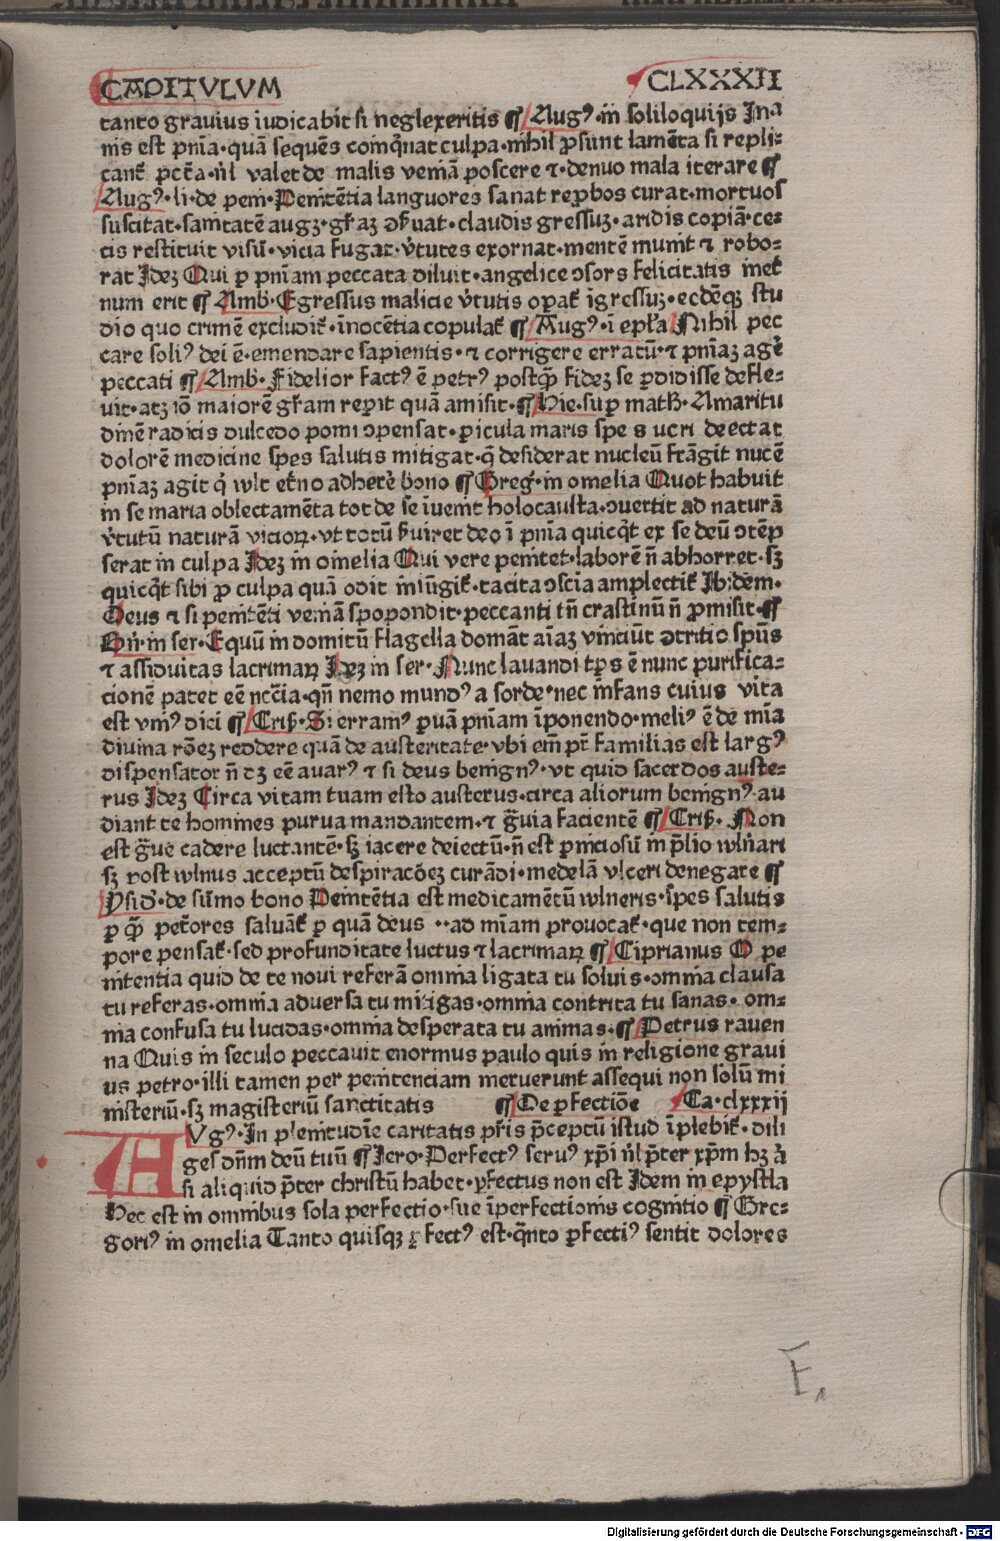 CAPITVLVM CLXXXII
tanto gravius iudicabit si neglexeritis ¶ Augꝰ·in soliloquijs Ina
nis est pn̄ia·quā sequēs coinq̄nat culpa·nihil ꝓsunt lamēta si repli⸗
cant᷑ pct̄a·nl̄ valet de malis veniā poscere ⁊·denuo mala iterare ¶
Augꝰ·li·de peni·Penitētia languores sanat reprobos curat·mortuos
suscitat·sanitatē augꝫ·gr̄aꝫ ↄẜuat·claudis gressuꝫ·aridis copiā·ce⸗
cis restituit visū·vicia fugat·v̄tutes exornat·mentē munit ⁊ robo⸗
rat Ideꝫ Qui ꝑ pn̄iam peccata diluit·angelice ↄsors felicitatis inet̄
num erit ¶ Amb̄·Egressus malicie v̄tutis opat᷑ īgressuꝫ·ecdēqꝫ stu
dio quo crimē excludit᷑·īnocētia copulat᷑ ¶ Augꝰ·ī epl̄a Nihil pec
care soliꝰ dei ē·emendare sapientis·⁊ corrigere erratū·⁊ pn̄iaꝫ agē
peccati ¶ Amb̄·Fidelior factꝰ ē petrꝰ postq̄ꝫ fideꝫ se ꝑdidisse defle⸗
vit·atꝫ iō maiorē gr̄am repit quā amisit·¶ Hie·suꝑ math̄·Amaritu
dinē radicis dulcedo pomi ↄpensat·ꝑicula maris spe
dolorē medicine spes salutis mitigat·q̄ desiderat nucleū frāgit nucē
pn̄iaꝫ agit q̄ wlt et̄no adherē bono ¶ Greḡ·in omelia Quot habuit
in se maria oblectamēta tot de se īuenit holocausta·ↄuertit ad naturā
v̄tutū naturā vicioꝝ·vt totū ẜuiret deo ī pn̄ia quicq̄t ex se deū ↄtēp
serat in culpa Ideꝫ in omelia Qui vere penitet·laborē n̄ abhorret·sꝫ
quicq̄t sibi ꝓ culpa quā odit iniūgit᷑·tacita ↄscīa amplectit᷑ Ibidem·
Deus ⁊ si penitēti veniā spopondit·peccanti tn̄ crastinū n̄ ꝓmisit·¶
Bn̄·in ser·Equū indomitū flagella domāt aīaꝫ vinciūt ↄtritio spūs
⁊ assiduitas lacrimaꝝ Ideꝫ in ser·Nunc lavandi tp̄s ē nunc purifica⸗
cionē patet eē nccīa·qn̄ nemo mundꝰ a sorde·nec infans cuius vita
est vniꝰ diei ¶ Crisꝭ·Si erramꝰ paruā pn̄iam īponendo·meliꝰ ē de mīa
diuina rōeꝫ reddere quā de austeritate·vbi em̄ pr̄ familias est largꝰ
dispensator n̄ dꝫ eē auarꝰ ⁊ si deus benignꝰ·vt quid sacerdos auste⸗
rus Ideꝫ Circa vitam tuam esto austerus·circa aliorum benignꝰ·au
diant te homines parua mandantem·⁊ ḡuia facientē ¶ Crisꝭ·Non
est ḡue cadere luctantē·sꝫ iacere deiectū·n̄ est ꝑniciosū in p̄lio wln̄ari
sꝫ post wlnus acceptū despiracōeꝫ curādi·medelā vlceri denegare ¶
Ysid̄·de sūmo bono Penitētia est medicamētū wlneris·spes salutis
ꝑ q̄ꝫ petōres saluāt᷑ ꝑ quā deus ··ad mīam prouocat᷑·que non tem⸗
pore pensat᷑·sed profunditate luctus ⁊ lacrimaꝝ ¶ Ciprianus O pe
nitentia quid de te noui referā omnia ligata tu soluis·omnia clausa
tu referas·omnia aduersa tu mitigas·omnia contrita tu sanas·om⸗
nia confusa tu lucidas·omnia desperata tu animas·¶ Petrus raven
na Quis in seculo peccauit enormus paulo quis in religione graui
us petro·illi tamen per penitenciam meruerunt assequi non solū mi
nisteriū·sꝫ magisteriū sanctitatis ¶ De ꝑfectiōe Ca·clxxxij
AVgꝰ·In plenitudīe caritatis pr̄is p̄ceptū istud īplebit᷑·dili
ges dn̄m deū tuū ¶ Jero·Perfectꝰ seruꝰ xp̄i nl̄ p̄ter xp̄m hꝫ ꝗ̄
si aliquid p̄ter christū habet·ꝑfectus non est Idem in epystla
Hec est in omnibus sola perfectio·sue īperfectionis cognitio ¶ Gre⸗
goriꝰ in omelia Tanto quisqꝫ ꝑfectꝰ est·q̄nto ꝑfectiꝰ sentit dolores
F.
Digitalisierung gefördert durch die Deutsche Forschungsgemeinschaft - DFG